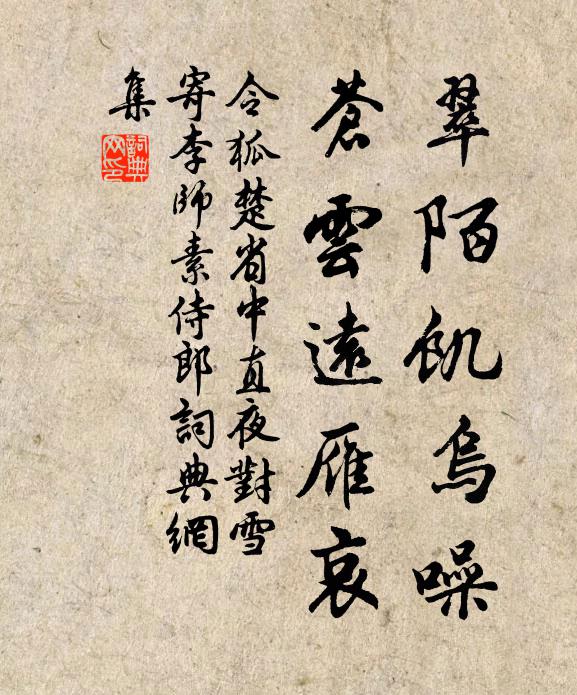 翠陌飢烏噪
蒼雲遠雁哀
令狐楚省中直夜對雪
寄李師素侍郎詞典網
集
詞典网印